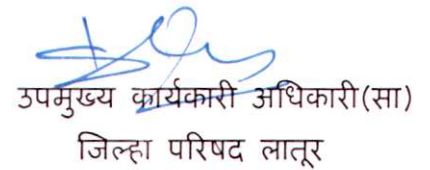 उपमुख्य कार्यकारी अधिकारी(सा)
जिल्हा परिषद लातूर